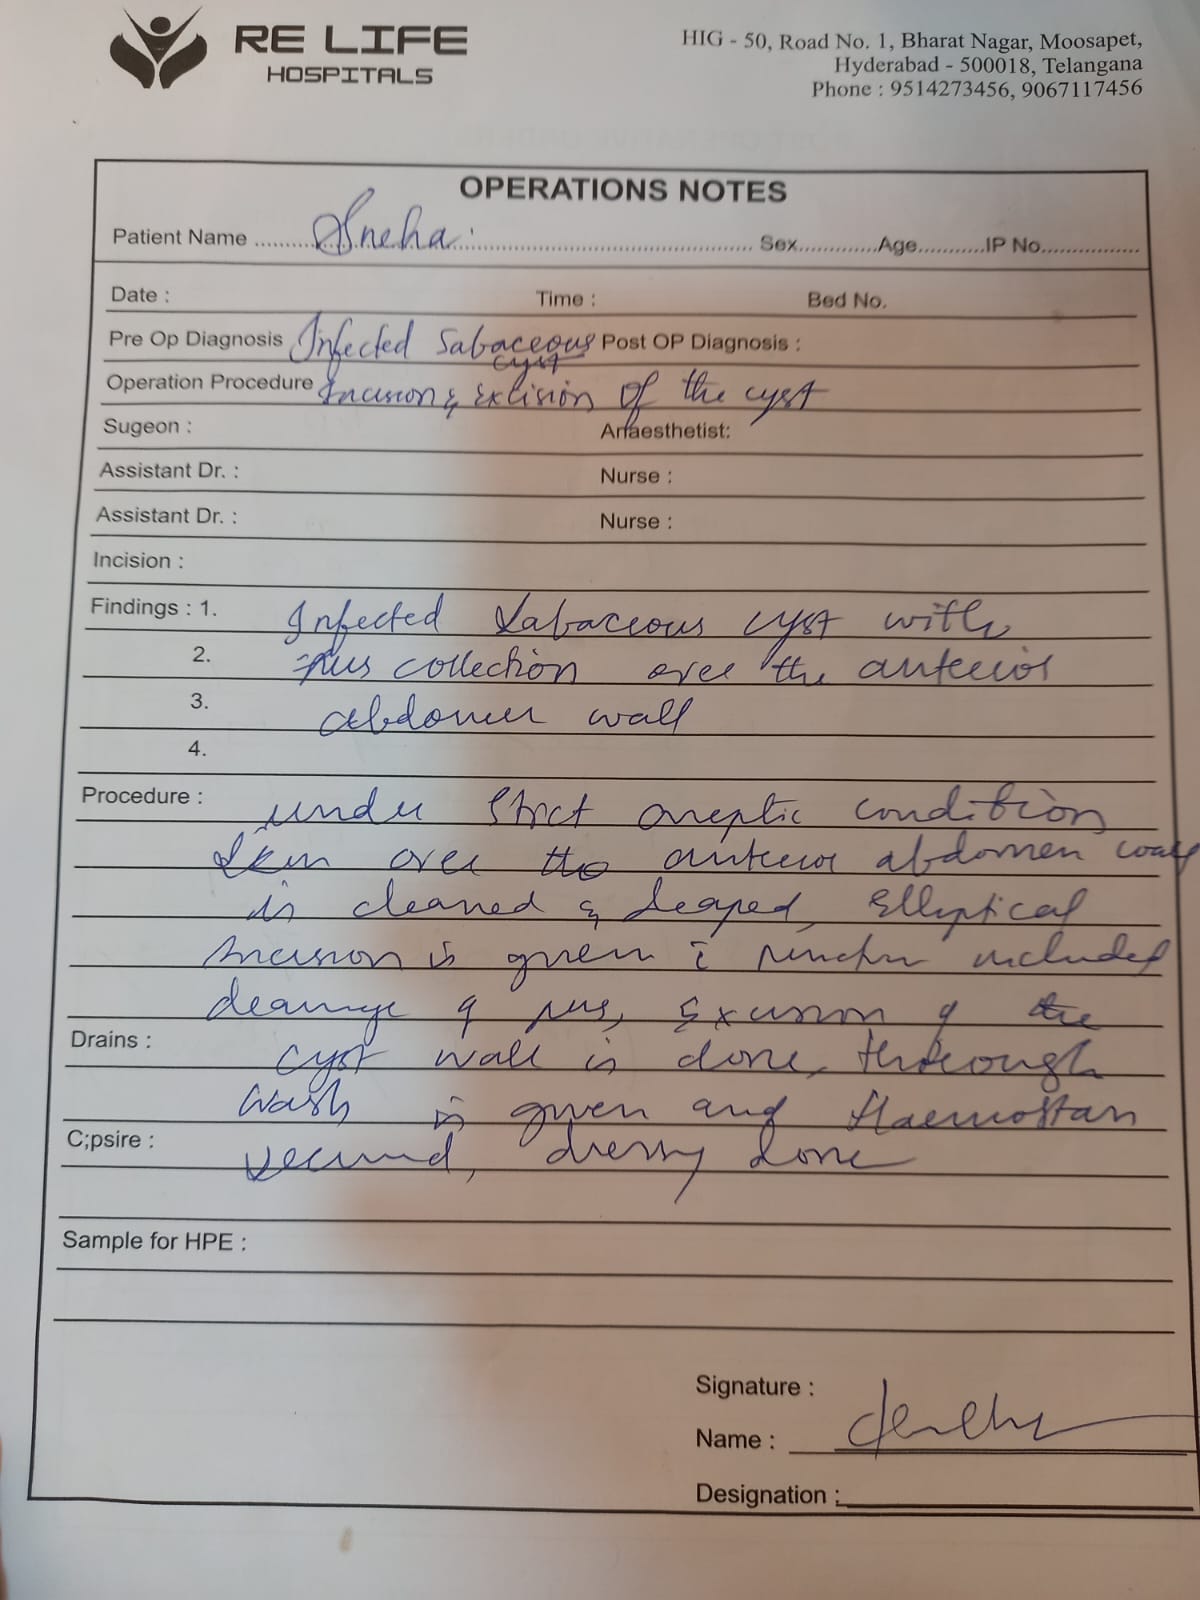 RE LIFE
HOSPITALS
HIG - 50, Road No. 1, Bharat Nagar, Moosapet,
Hyderabad - 500018, Telangana
Phone : 9514273456, 9067117456
OPERATIONS NOTES
Patient Name Sneha Sex............Age...........IP No.
Date : Time : Bed No.
Pre Op Diagnosis Infected Sabaceous cyst Post OP Diagnosis :
Operation Procedure Incision & Excision of the cyst
Sugeon : Anaesthetist:
Assistant Dr. : Nurse :
Assistant Dr. : Nurse :
Incision :
Findings : 1. Infected Sabaceous cyst with
2. pus collection over the anterior
3. abdomen wall
4.
Procedure : under strict aseptic condition
Skin over the anterior abdomen wall
is cleaned & draped, Elliptical
Incision is given included
drainage of pus, Excision of the
Drains : cyst wall is done, through
wash is given and Haemostasis
C;psire : secured, dressing done
Sample for HPE :
Signature :
Name :
Designation :